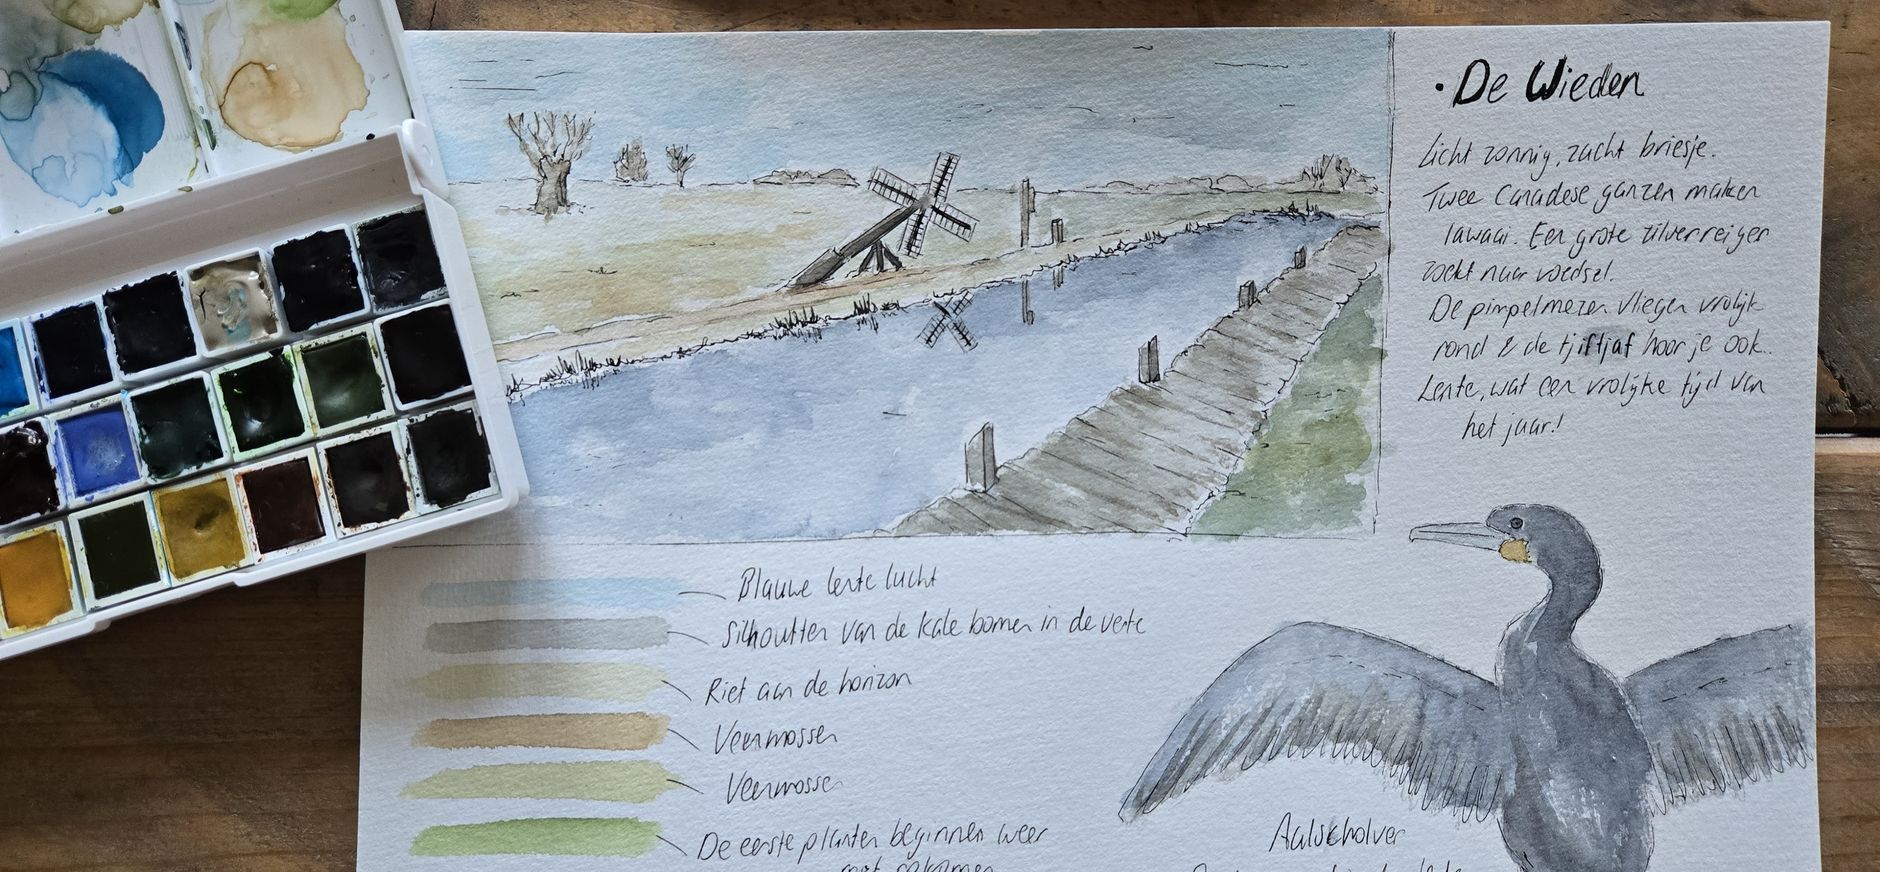 · De Wieden
Licht zonnig, zacht briesje.
Twee Canadese ganzen maken
lawaai. Een grote zilverreiger
zoekt naar voedsel.
De pimpelmezen vliegen vrolijk
rond & de tjiftjaf hoor je ook..
Lente, wat een vrolijke tijd van
het jaar!
Blauwe lente lucht
Silhoutten van de kale bomen in de verte
Riet aan de horizon
Veenmossen
Veenmossen
De eerste planten beginnen weer
met opkomen
Aalscholver